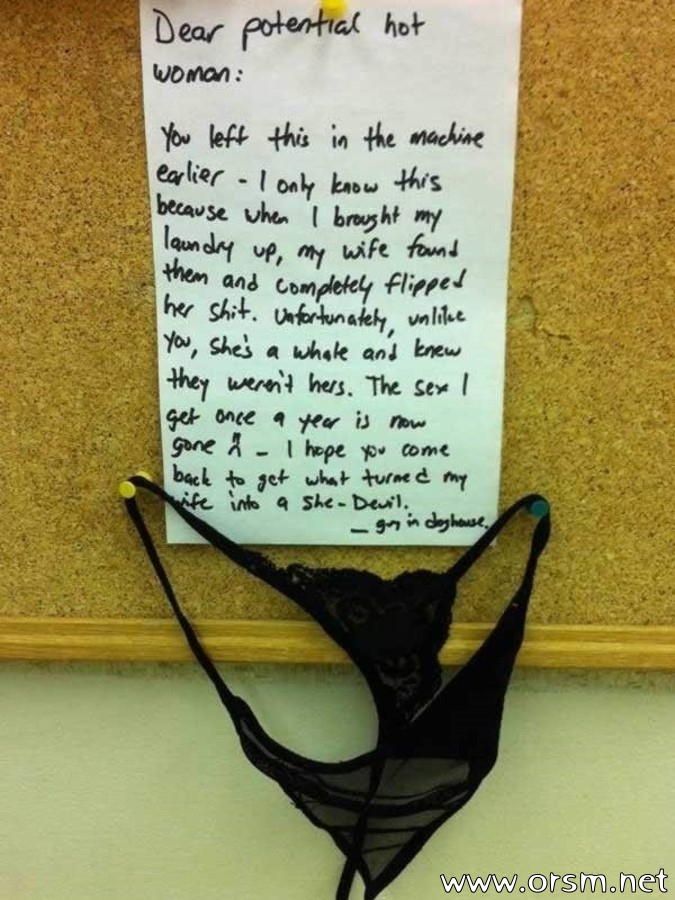 Dear potential hot
woman:
You left this in the machine
earlier - I only know this
because when I brought my
laundry up, my wife found
them and completely flipped
her shit. Unfortunately, unlike
you, she's a whale and knew
they weren't hers. The sex I
get once a year is now
gone - I hope you come
back to get what turned my
wife into a she-Devil.
- guy in doghouse.
www.orsm.net